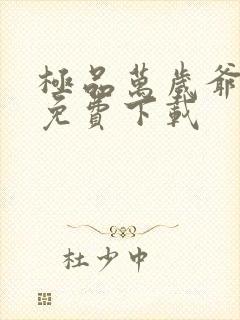 極品萬歲爺
免費下載
杜少中